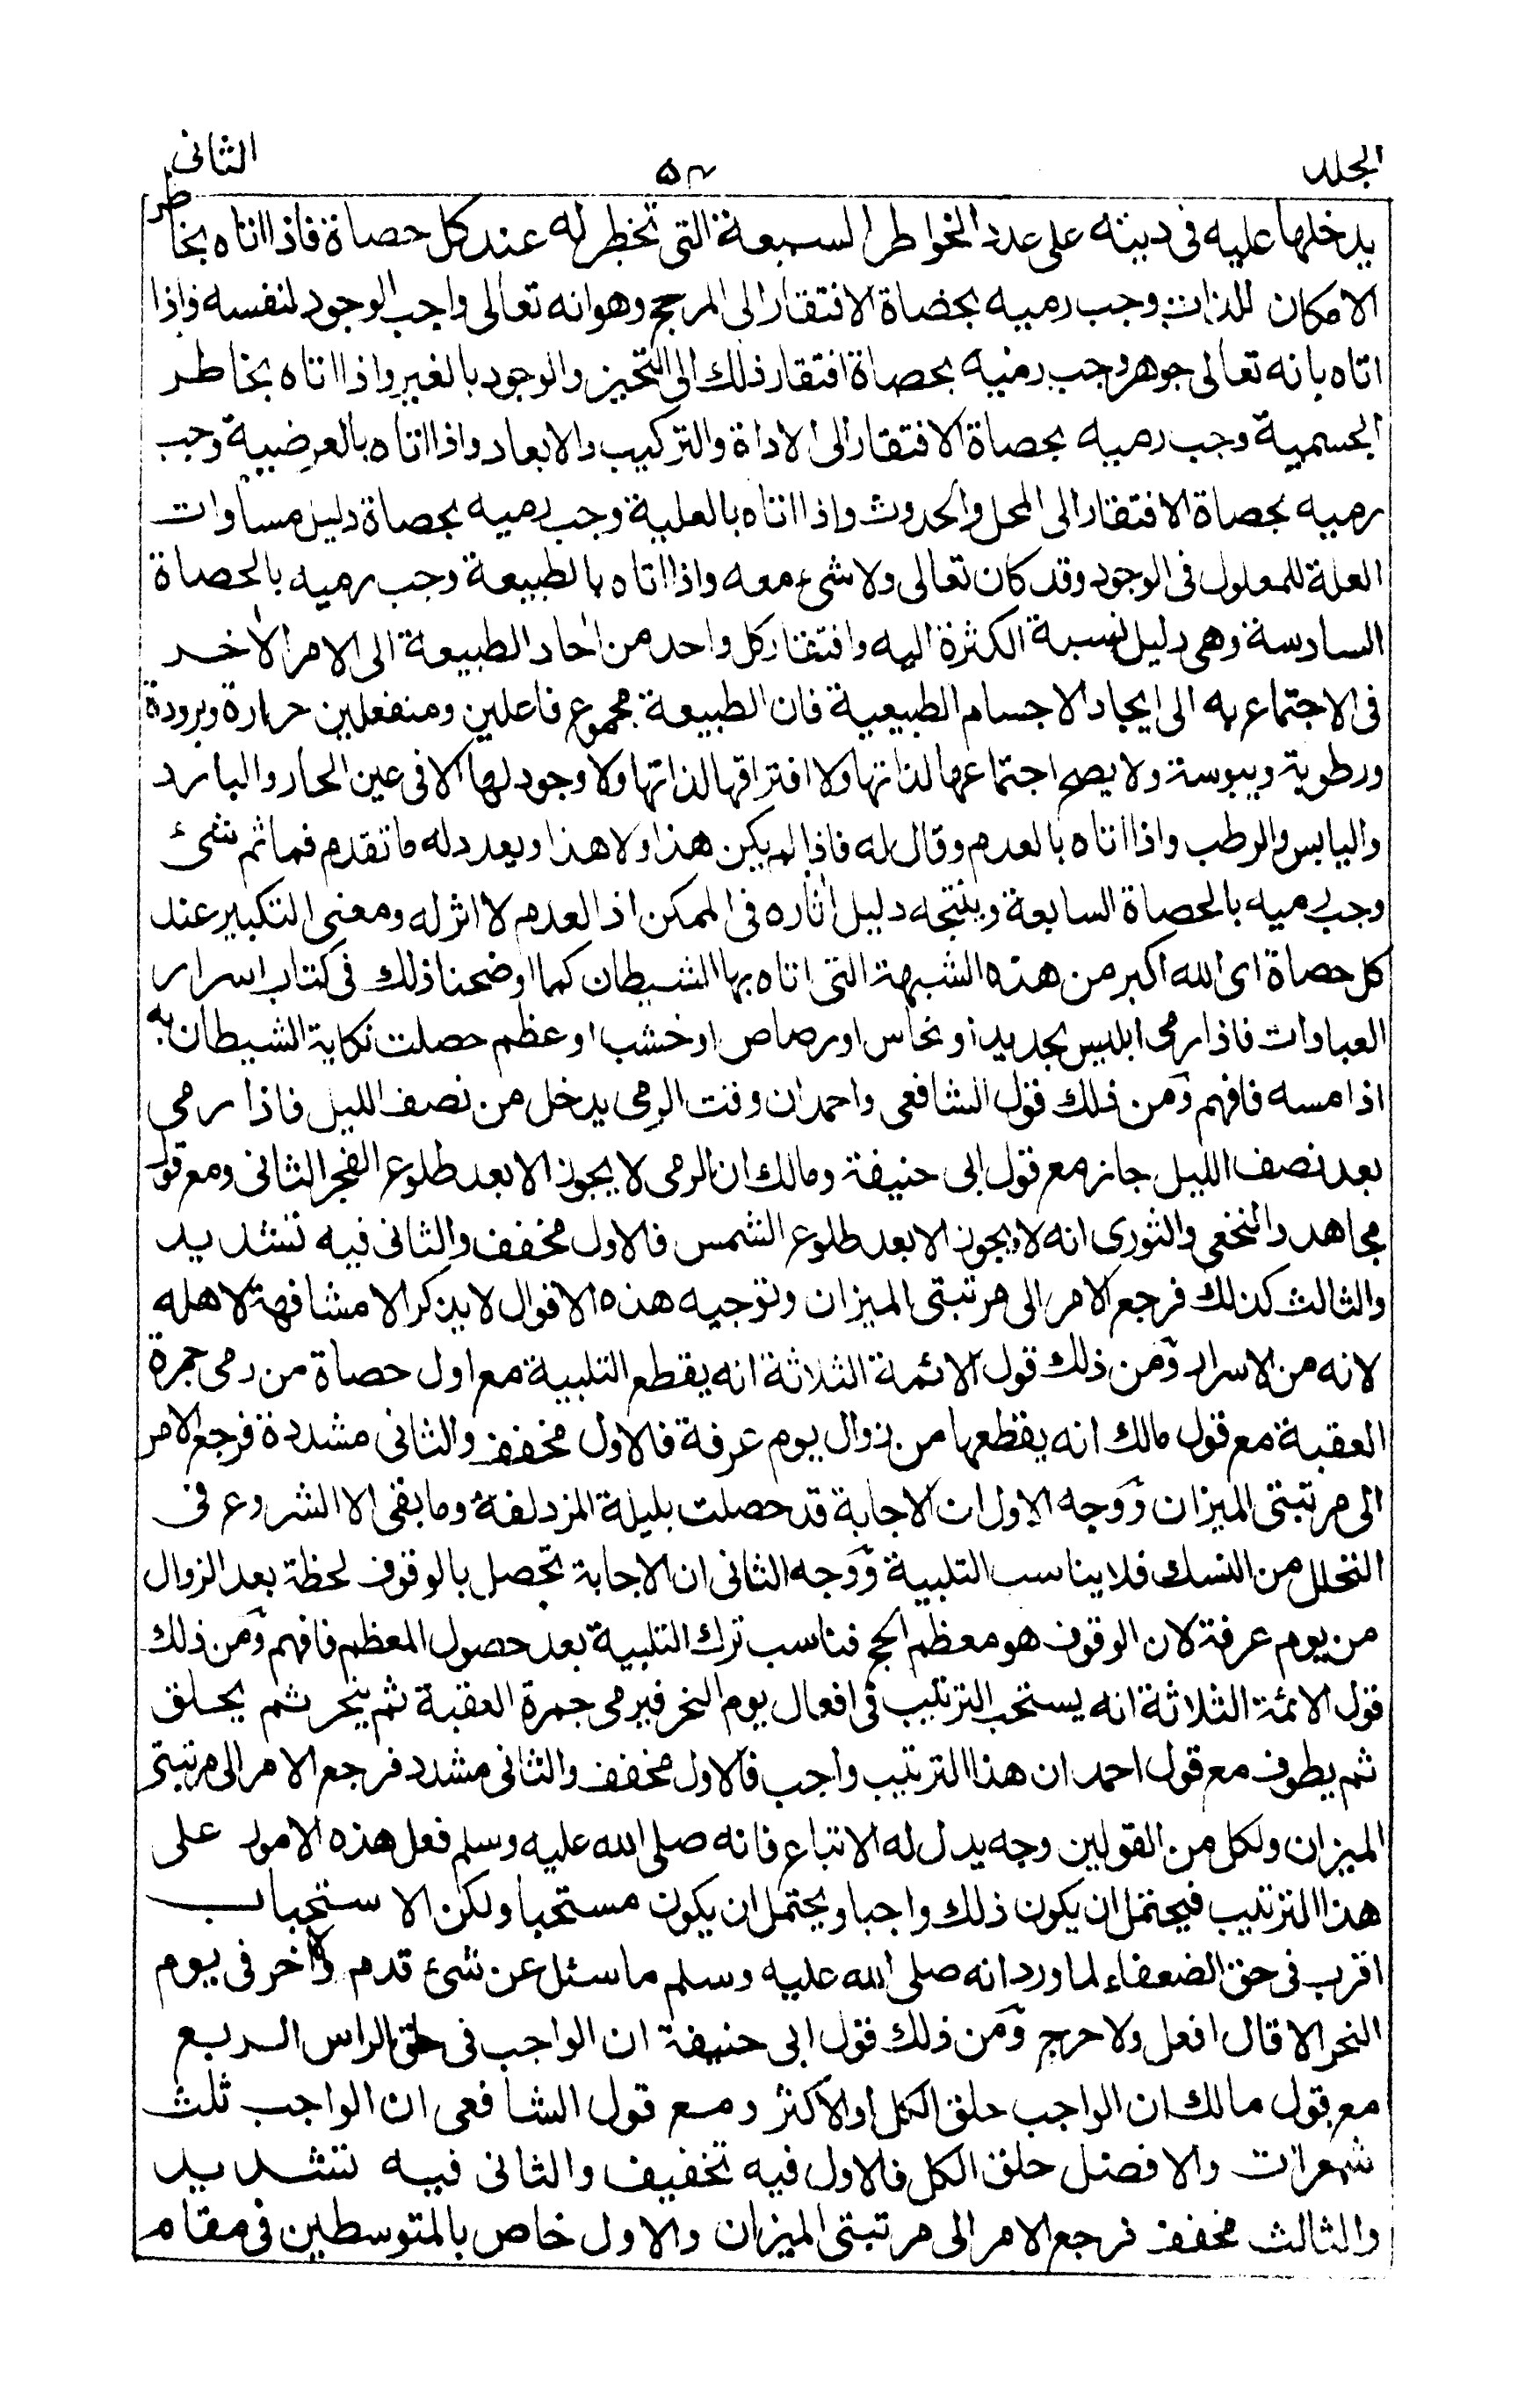 الجلد ٥٢ الثانى
يدخلها عليه فى دينه على عدد الخواطر السبعة التى تخطر له عند كل حصاة فاذا اتاه بخاطر
الامكان للذات وجب رميه بحصاة الافتقار الى المرجح وهوانه تعالى واجب الوجود لنفسه واذا
اتاه بانه تعالى جوهر وجب رميه بحصاة افتقار ذلك الى التحيز والوجود بالغير واذا اتاه بخاطر
الجسمية وجب رميه بحصاة الافتقار الى الاداة والتركيب والابعاد واذا اتاه بالعرضية وجب
رميه بحصاة الافتقار الى المحل والحدوث واذا اتاه بالعلية وجب رميه بحصاة دليل مساوات
العلة للمعلول فى الوجود وقد كان تعالى ولا شىء معه واذا اتاه بالطبيعة وجب رميه بالحصاة
السادسة وهى دليل نسبة الكثرة اليه وافتقار كل واحد من احاد الطبيعة الى الامر الاخر
فى الاجتماع به الى ايجاد الاجسام الطبيعية فان الطبيعة مجموع فاعلين ومنفعلين حرارة وبرودة
ورطوبة ويبوسة ولا يصح اجتماعها لذاتها ولا افتراقها لذاتها ولا وجود لها الا فى عين الحار والبارد
واليابس والرطب واذا اتاه بالعدم وقال له فاذا لم يكن هذا ولا هذا ويعدد له ما تقدم فما ثم شئ
وجب رميه بالحصاة السابعة وينتجه دليل اثاره فى الممكن اذ العدم لا اثر له ومعنى التكبير عند
كل حصاة اى الله اكبر من هذه الشبهة التى اتاه بها الشيطان كما اوضحنا ذلك فى كتاب اسرار
العباوات فاذا رمى ابليس بحديد او نحاس او رصاص او خشب او عظم حصلت نكاية الشيطان به
اذا مسه فافهم ومن ذلك قول الشافعى واحمد ان وقت الرمى يدخل من نصف الليل فاذا رمى
بعد نصف الليل جاز مع قول ابى حنيفة ومالك ان الرمى لا يجوز الا بعد طلوع الفجر الثانى ومع قول
مجاهد والنخعى والثورى انه لا يجوز الا بعد طلوع الشمس فالاول مخفف والثانى فيه تشديد
والثالث كذلك فرجع الامر الى مرتبتى الميزان وتوجيه هذه الاقوال لا يذكر الا مشافهة لاهله
لانه من الاسرار ومن ذلك قول الائمة الثلاثة انه يقطع التلبية مع اول حصاة من رمى جمرة
العقبة مع قول مالك انه يقطعها من زوال يوم عرفة فالاول مخفف والثانى مشددة فرجع الامر
الى مرتبتى الميزان ووجه الاول ان الاجابة قد حصلت بليلة المزدلفة وما بقى الا الشروع فى
التحلل من النسك فلا يناسب التلبية ووجه الثانى ان الاجابة تحصل بالوقوف لحظة بعد الزوال
من يوم عرفة لان الوقوف هو معظم الحج فناسب ترك التلبية بعد حصول المعظم فافهم ومن ذلك
قول الائمة الثلاثة انه يستحب الترتيب فى افعال يوم النحر فيرمى جمرة العقبة ثم ينحر ثم يحلق
ثم يطوف مع قول احمد ان هذا الترتيب واجب فالاول مخفف والثانى مشدد فرجع الامر الى مرتبتى
الميزان ولكل من القولين وجه يدل له الاتباع فانه صلى الله عليه وسلم فعل هذه الامور على
هذا الترتيب فيحتمل ان يكون ذلك واجبا ويحتمل ان يكون مستحبا ولكن الاستحباب
اقرب فى حق الضعفاء لما ورد انه صلى الله عليه وسلم ما سئل عن شئ قدم ولا اخر فى يوم
النحر الا قال افعل ولا حرج ومن ذلك قول ابى حنيفة ان الواجب فى حلق الراس الربع
مع قول مالك ان الواجب حلق الكل او الاكثر ومع قول الشافعى ان الواجب ثلث
شعرات والافضل حلق الكل فالاول فيه تخفيف والثانى فيه تشديد
والثالث مخفف فرجع الامر الى مرتبتى الميزان والاول خاص بالمتوسطين فى مقام